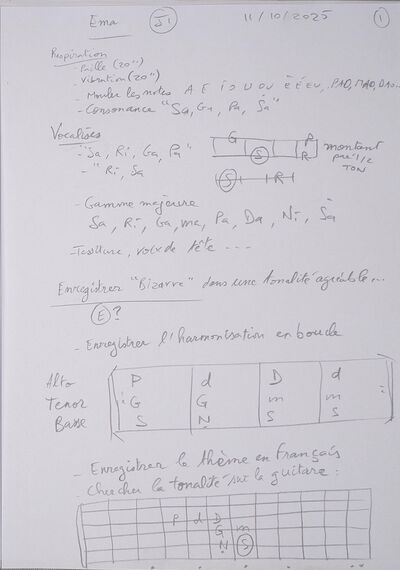 Ema S1 11/10/2025 1
Respiration
- Paille (20'')
- Vibration (20'')
- Mouler les notes A E I O U OU É È EU, PAO, MAO, DAO...
- Consonance "Sa, Ga, Pa, Ṡa"
Vocalises
- "Sa, Ri, Ga, Pa"
G P
S R
montant
par 1/2
TON
- "Ri, Sa
S R
- Gamme majeure
Sa, Ri, Ga, ma, Pa, Da, Ni, Ṡa
- Tessiture, voix de tête ...
Enregistrer "Bizarre" dans une tonalité agréable...
E ?
- Enregistrer l'harmonisation en boucle
Alto P d D d
Tenor G G m m
Basse S N S S
- Enregistrer le thème en Français
- Chercher la tonalité sur la guitare :
P d D
G m
N S